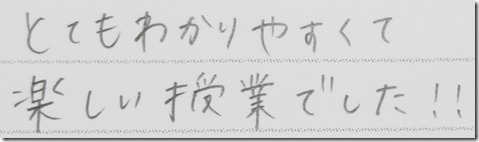 とてもわかりやすくて
楽しい授業でした!!